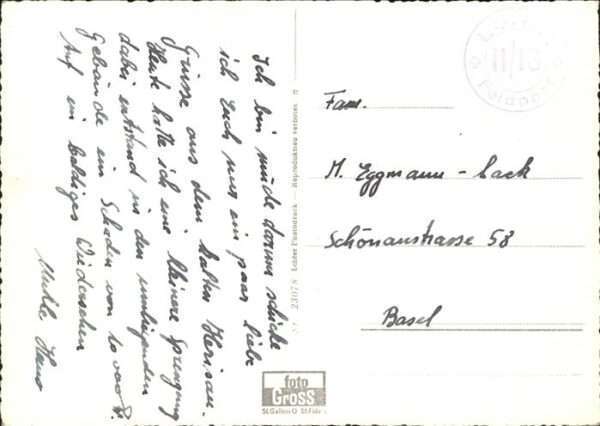 Ich bin müde darum schicke
ich Euch nur ein paar liebe
Grüsse aus dem kalten Herisau.
Heute hatte ich eine kleinere Sprengung
dabei entstand in den umliegenden
Gebäude ein Schaden von 10 000 Fr.
Auf ein baldiges Wiedersehen
Hans
Fam.
M. Eggmann - Sack
Schönaustrasse 58
Basel
Echter Fotodruck — Reproduktion verboten
23078
11/13
Feldpost
foto
Gross
St.Gallen O St.Fiden